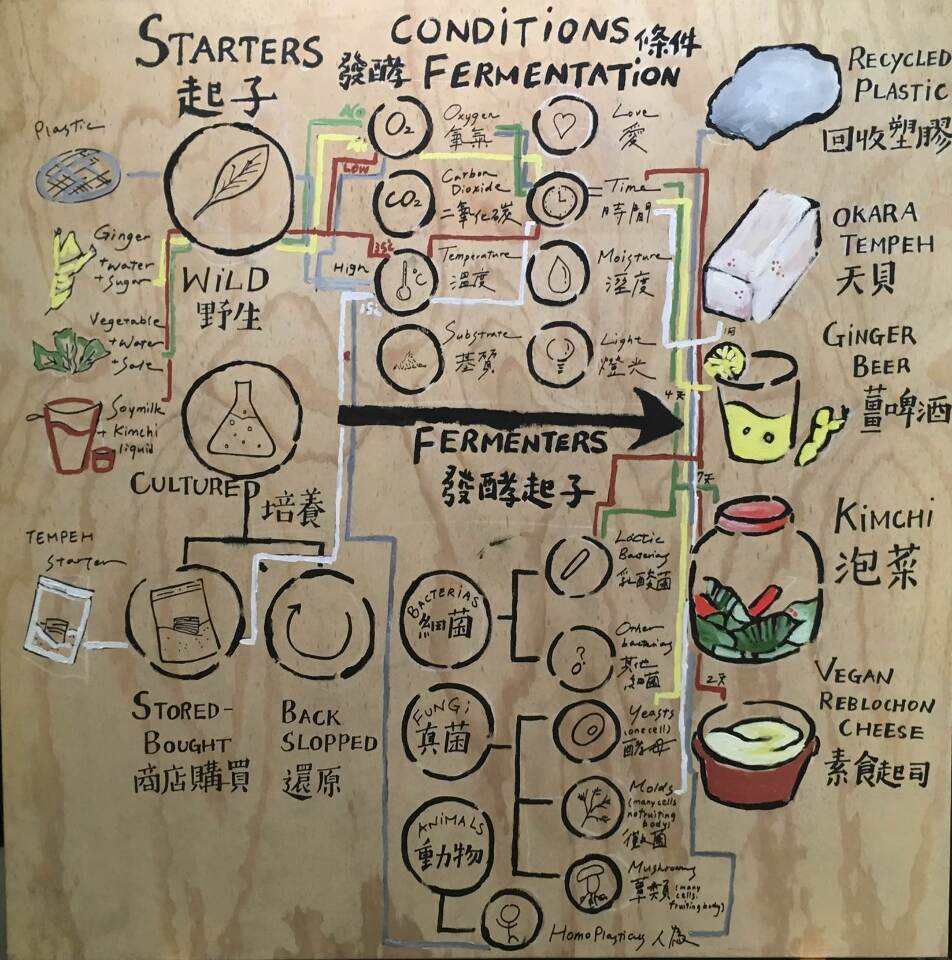 STARTERS
起子
CONDITIONS 條件
發酵 FERMENTATION
Plastic
Ginger
+ water
+ Sugar
Vegetable
+ Water
+ Salt
Soymilk
+ Kimchi
liquid
WiLD
野生
CULTURED
培養
TEMPEH
Starter
STORED-
BOUGHT
商店購買
BACK
SLOPPED
還原
NO
LOW
35℃
High
15℃
O2
Oxygen
氧氣
CO2
Carbon
Dioxide
二氧化碳
°C
Temperature
溫度
Substrate
基質
Love
愛
Time
時間
Moisture
溼度
Light
燈光
FERMENTERS
發酵起子
BACTERIAS
細菌
Lactic
乳酸菌
Other
bacterias
其他
細菌
FUNGi
真菌
Yeasts
(one cell)
酵母
Molds
(many cells
no fruiting
body)
黴菌
Mushrooms
蕈類 (many
cells,
fruiting body)
ANiMALS
動物
Homo Plasticus 人
RECYCLED
PLASTIC
回收塑膠
OKARA
TEMPEH
天貝
GINGER
BEER
薑啤酒
4天
KiMCHi
泡菜
7天
VEGAN
REBLOCHON
CHEESE
素食起司
2天